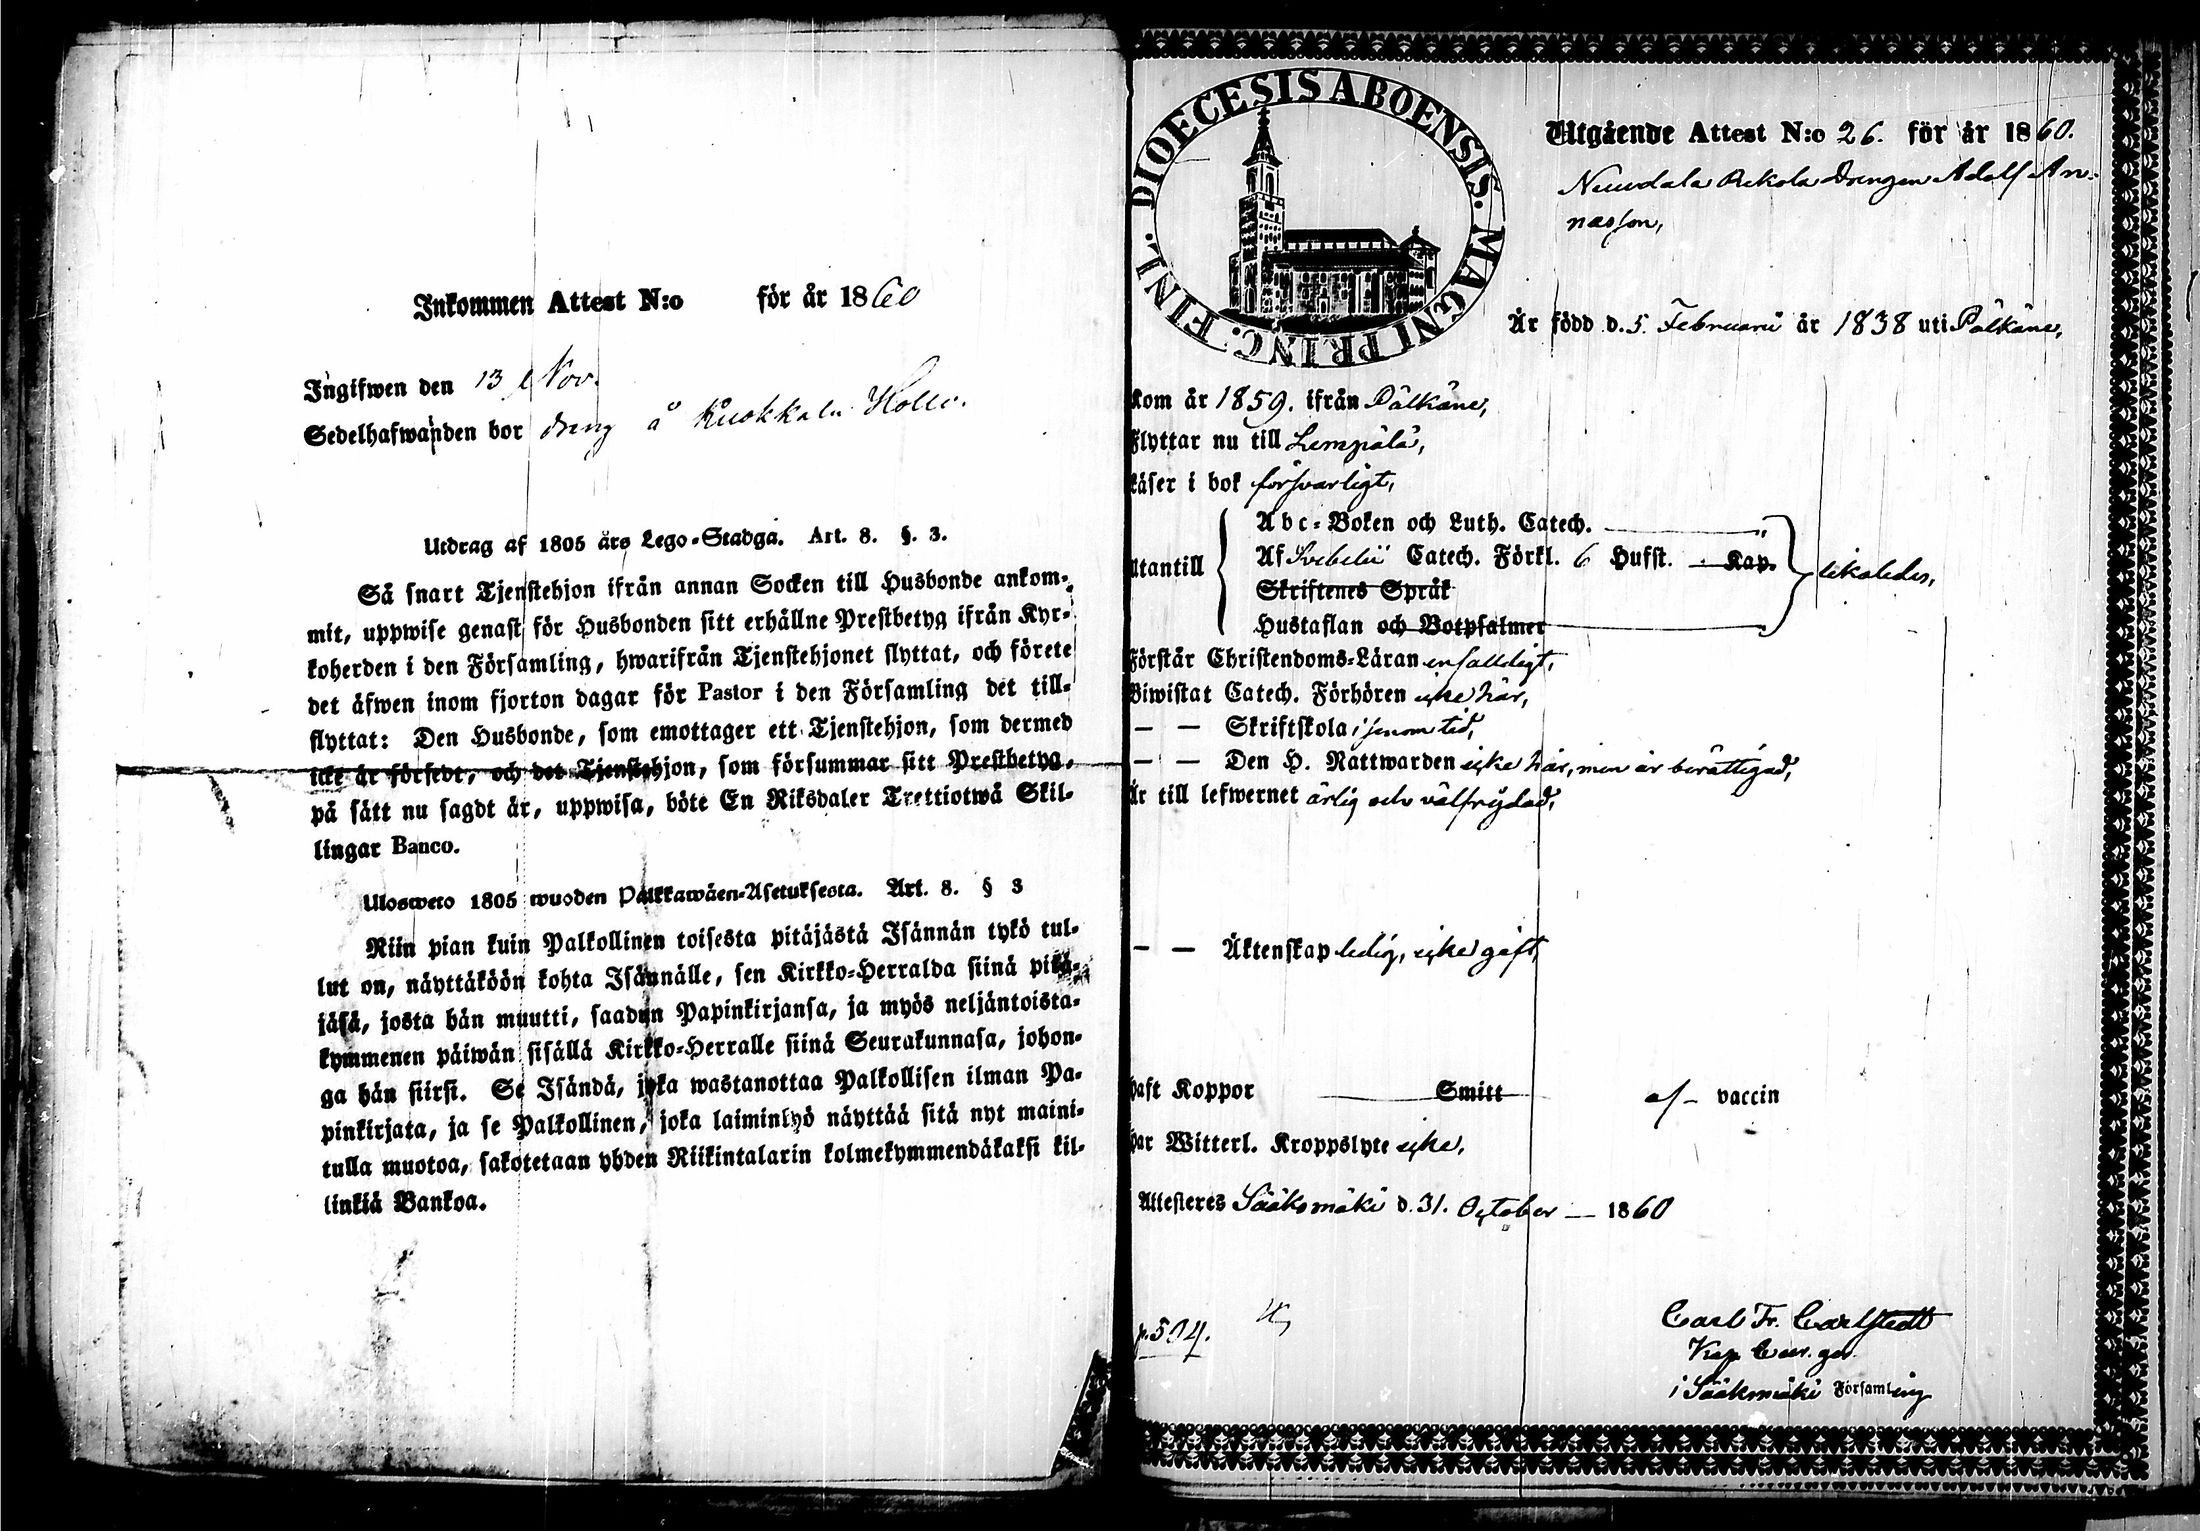 Inkommen Attest N:o för år 1860
Ingifwen den 13 Nov.
Sedelhafwanden bor dreng å Kuokkala Hollo.
Utdrag af 1805 års Lego-Stadga. Art. 8. §. 3.
Så snart Tjenstehjon ifrån annan Socken till Husbonde ankom-
mit, uppwise genast för Husbonden sitt erhållne Prestbetyg ifrån Kyr-
koherden i den Församling, hwarifrån Tjenstehjonet flyttat, och förete
det äfwen inom fjorton dagar för Pastor i den Församling det till-
flyttat: Den Husbonde, som emottager ett Tjenstehjon, som dermed
icke är försedt, och det Tjenstehjon, som försummar sitt Prestbetyg,
på sätt nu sagdt är, uppwisa, böte En Riksdaler Trettiotwå Skil-
lingar Banco.
Ulosweto 1805 wuoden Palkkawäen-Asetuksesta. Art. 8. § 3
Niin pian kuin Palkollinen toisesta pitäjästä Isännän tykö tul-
lut on, näyttäköön kohta Isännälle, sen Kirkko-Herralda siinä pitä-
jäsä, josta hän muutti, saadun Papinkirjansa, ja myös neljäntoista-
kymmenen päiwän sisällä Kirkko-Herralle siinä Seurakunnasa, johon-
ga hän siirsi. Se Isändä, joka wastanottaa Palkollisen ilman Pa-
pinkirjata, ja se Palkollinen, joka laiminlyö näyttää sitä nyt maini-
tulla muotoa, sakotetaan yhden Riikintalarin kolmekymmendäkaksi kil-
linkiä Bankoa.
DIOECESIS ABOENSIS. MAGNI PRINC. FINL.
Utgående Attest N:o 26. för år 1860.
Drengen Adolf An-
nasson,
Är född d. 5. Februarii år 1838 uti Pälkäne,
Kom år 1859. ifrån Pälkäne,
Flyttar nu till Lempälä,
Läser i bok försvarligt,
Utantill
Abc-Boken och Luth. Catech.
Af Svebelii Catech. Förkl. 6 Hufst. Kap.
Skriftenes Språk
Hustaflan och Botpsalmer
likaledes,
Förstår Christendoms-Läran enfalldigt,
Biwistat Catech. Förhören icke här,
— — Skriftskola i sinom tid,
— — Den H. Nattwarden icke här, men är berättigad,
Är till lefwernet ärlig och välfrejdad,
— — Äktenskap ledig, icke gift,
Haft Koppor Smitt af vaccin
Har Witterl. Kroppslyte icke,
Attesteres Sääksmäki d. 31. October — 1860
p. 504.
Carl Fr. Carlstedt
i Sääksmäki Församling